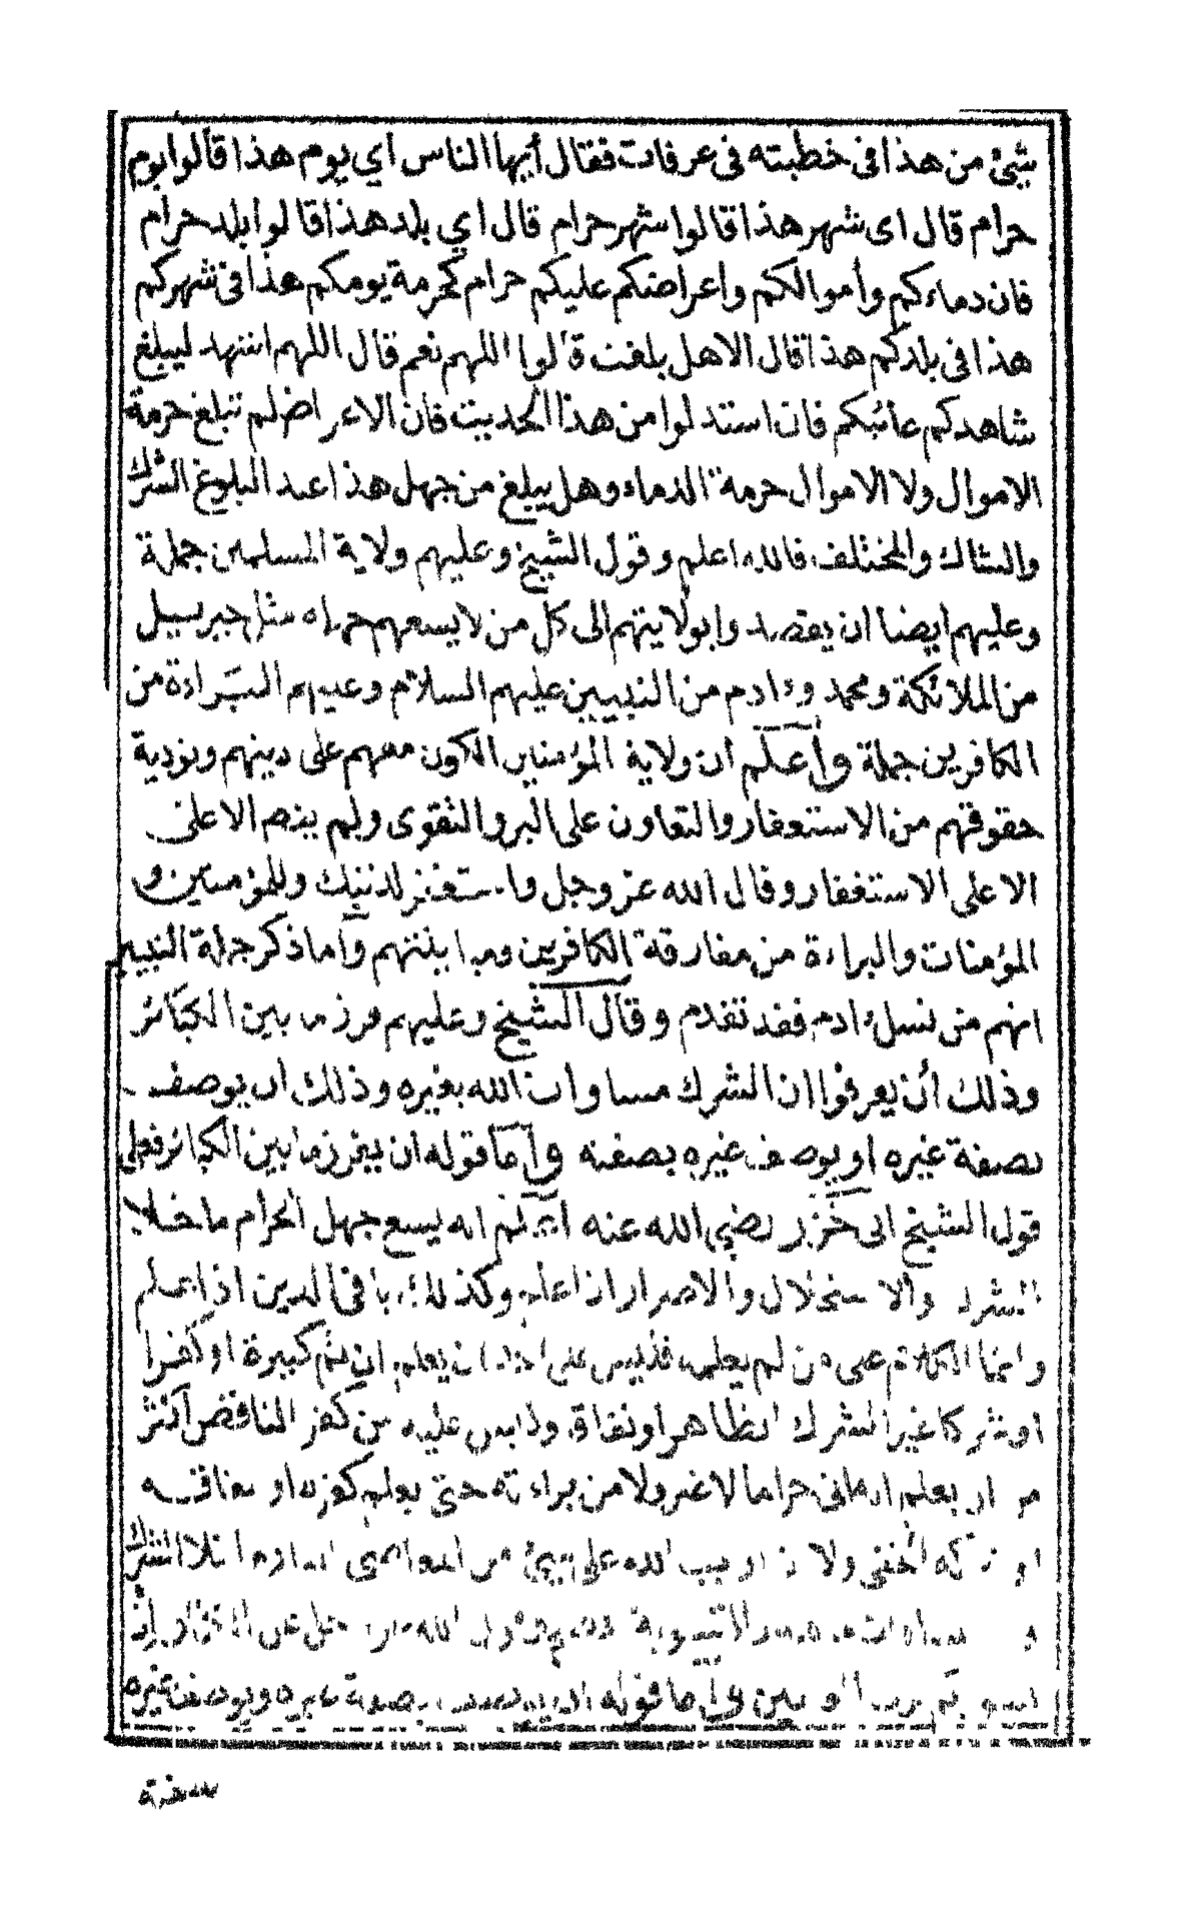 شئ من هذا فى خطبته فى عرفات فقال أيها الناس اي يوم هذا قالوا يوم
حرام قال اى شهر هذا قالوا شهر حرام قال اي بلد هذا قالوا بلد حرام
فان دماءكم وأموالكم واعراضكم عليكم حرام كحرمة يومكم هذا فى شهركم
هذا فى بلدكم هذا قال الاهل بلغت قالوا اللهم نعم قال اللهم اشهد ليبلغ
شاهدكم غائبكم فان استدلوا من هذا الحديث فان الاعراض لم تبلغ حرمة
الاموال ولا الاموال حرمة الدماء وهل يبلغ من جهل هذا عند البلوغ الشرك
والشاك والمختلف فالله اعلم وقول الشيخ وعليهم ولاية المسلمين جملة
وعليهم ايضا ان يقصدوا بولايتهم الى كل من لا يسعهم جهله مثل جبريل
من الملائكة ومحمد وءادم من النبيين عليهم السلام وعليهم البراءة من
الكافرين جملة واعلم ان ولاية المؤمنين الكون معهم على دينهم وتودية
حقوقهم من الاستغفار والتعاون على البر والتقوى ولم ينص الاعلى
الاعلى الاستغفار وقال الله عز وجل واستغفر لذنبك وللمؤمنين و
المؤمنات والبراءة من مفارقة الكافرين ومباينتهم وأما ذكر جملة النبيين
انهم من نسل ءادم فقد تقدم وقال الشيخ وعليهم فرز ما بين الكبائر
وذلك أن يعرفوا ان الشرك مساوات الله بغيره وذلك ان يوصف
بصفة غيره او يوصف غيره بصفته وأما قوله ان يفرز ما بين الكبائر فعلى
قول الشيخ ابى خزر رضي الله عنه انه يسع جهل الحرام ما خلا
الشرك والاستحلال والاصرار اذا علم وكذلك باقى الدين اذا علم
وانما الكلام على من لم يعلمه فليس على احد ان يعلم ان ثم كبيرة او كفرا
او شركا غير الشرك الظاهر او نفاق وليس عليه من كفر المنافق اكثر
ان يعلم حراما لا غير ولا من براءته حتى يعلم كفره او نفاقه
ولا الله على شئ من المعاصى الشرك
وأما قوله بصفة غيره ويوصف غيره